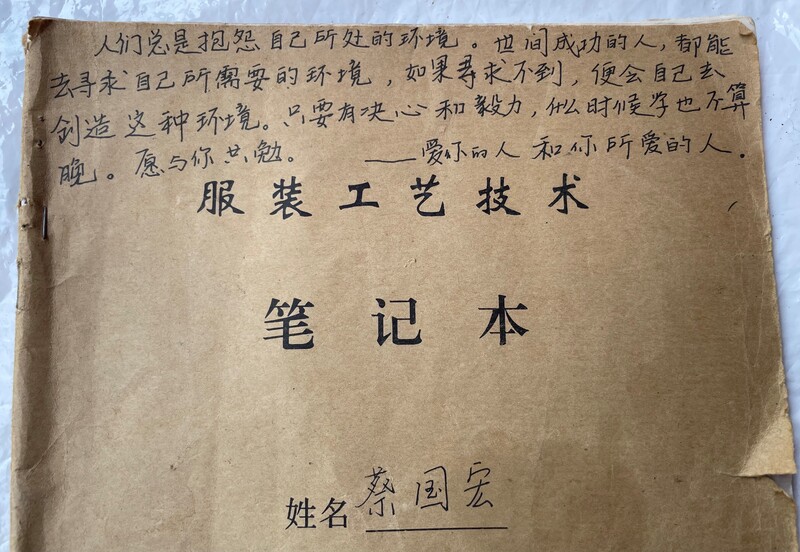 人们总是抱怨自己所处的环境。世间成功的人，都能
去寻求自己所需要的环境，如果寻求不到，便会自己去
创造这种环境。只要有决心和毅力，什么时候学也不算
晚。愿与你共勉。——爱你的人和你所爱的人.
服装工艺技术
笔记本
姓名 蔡国宏